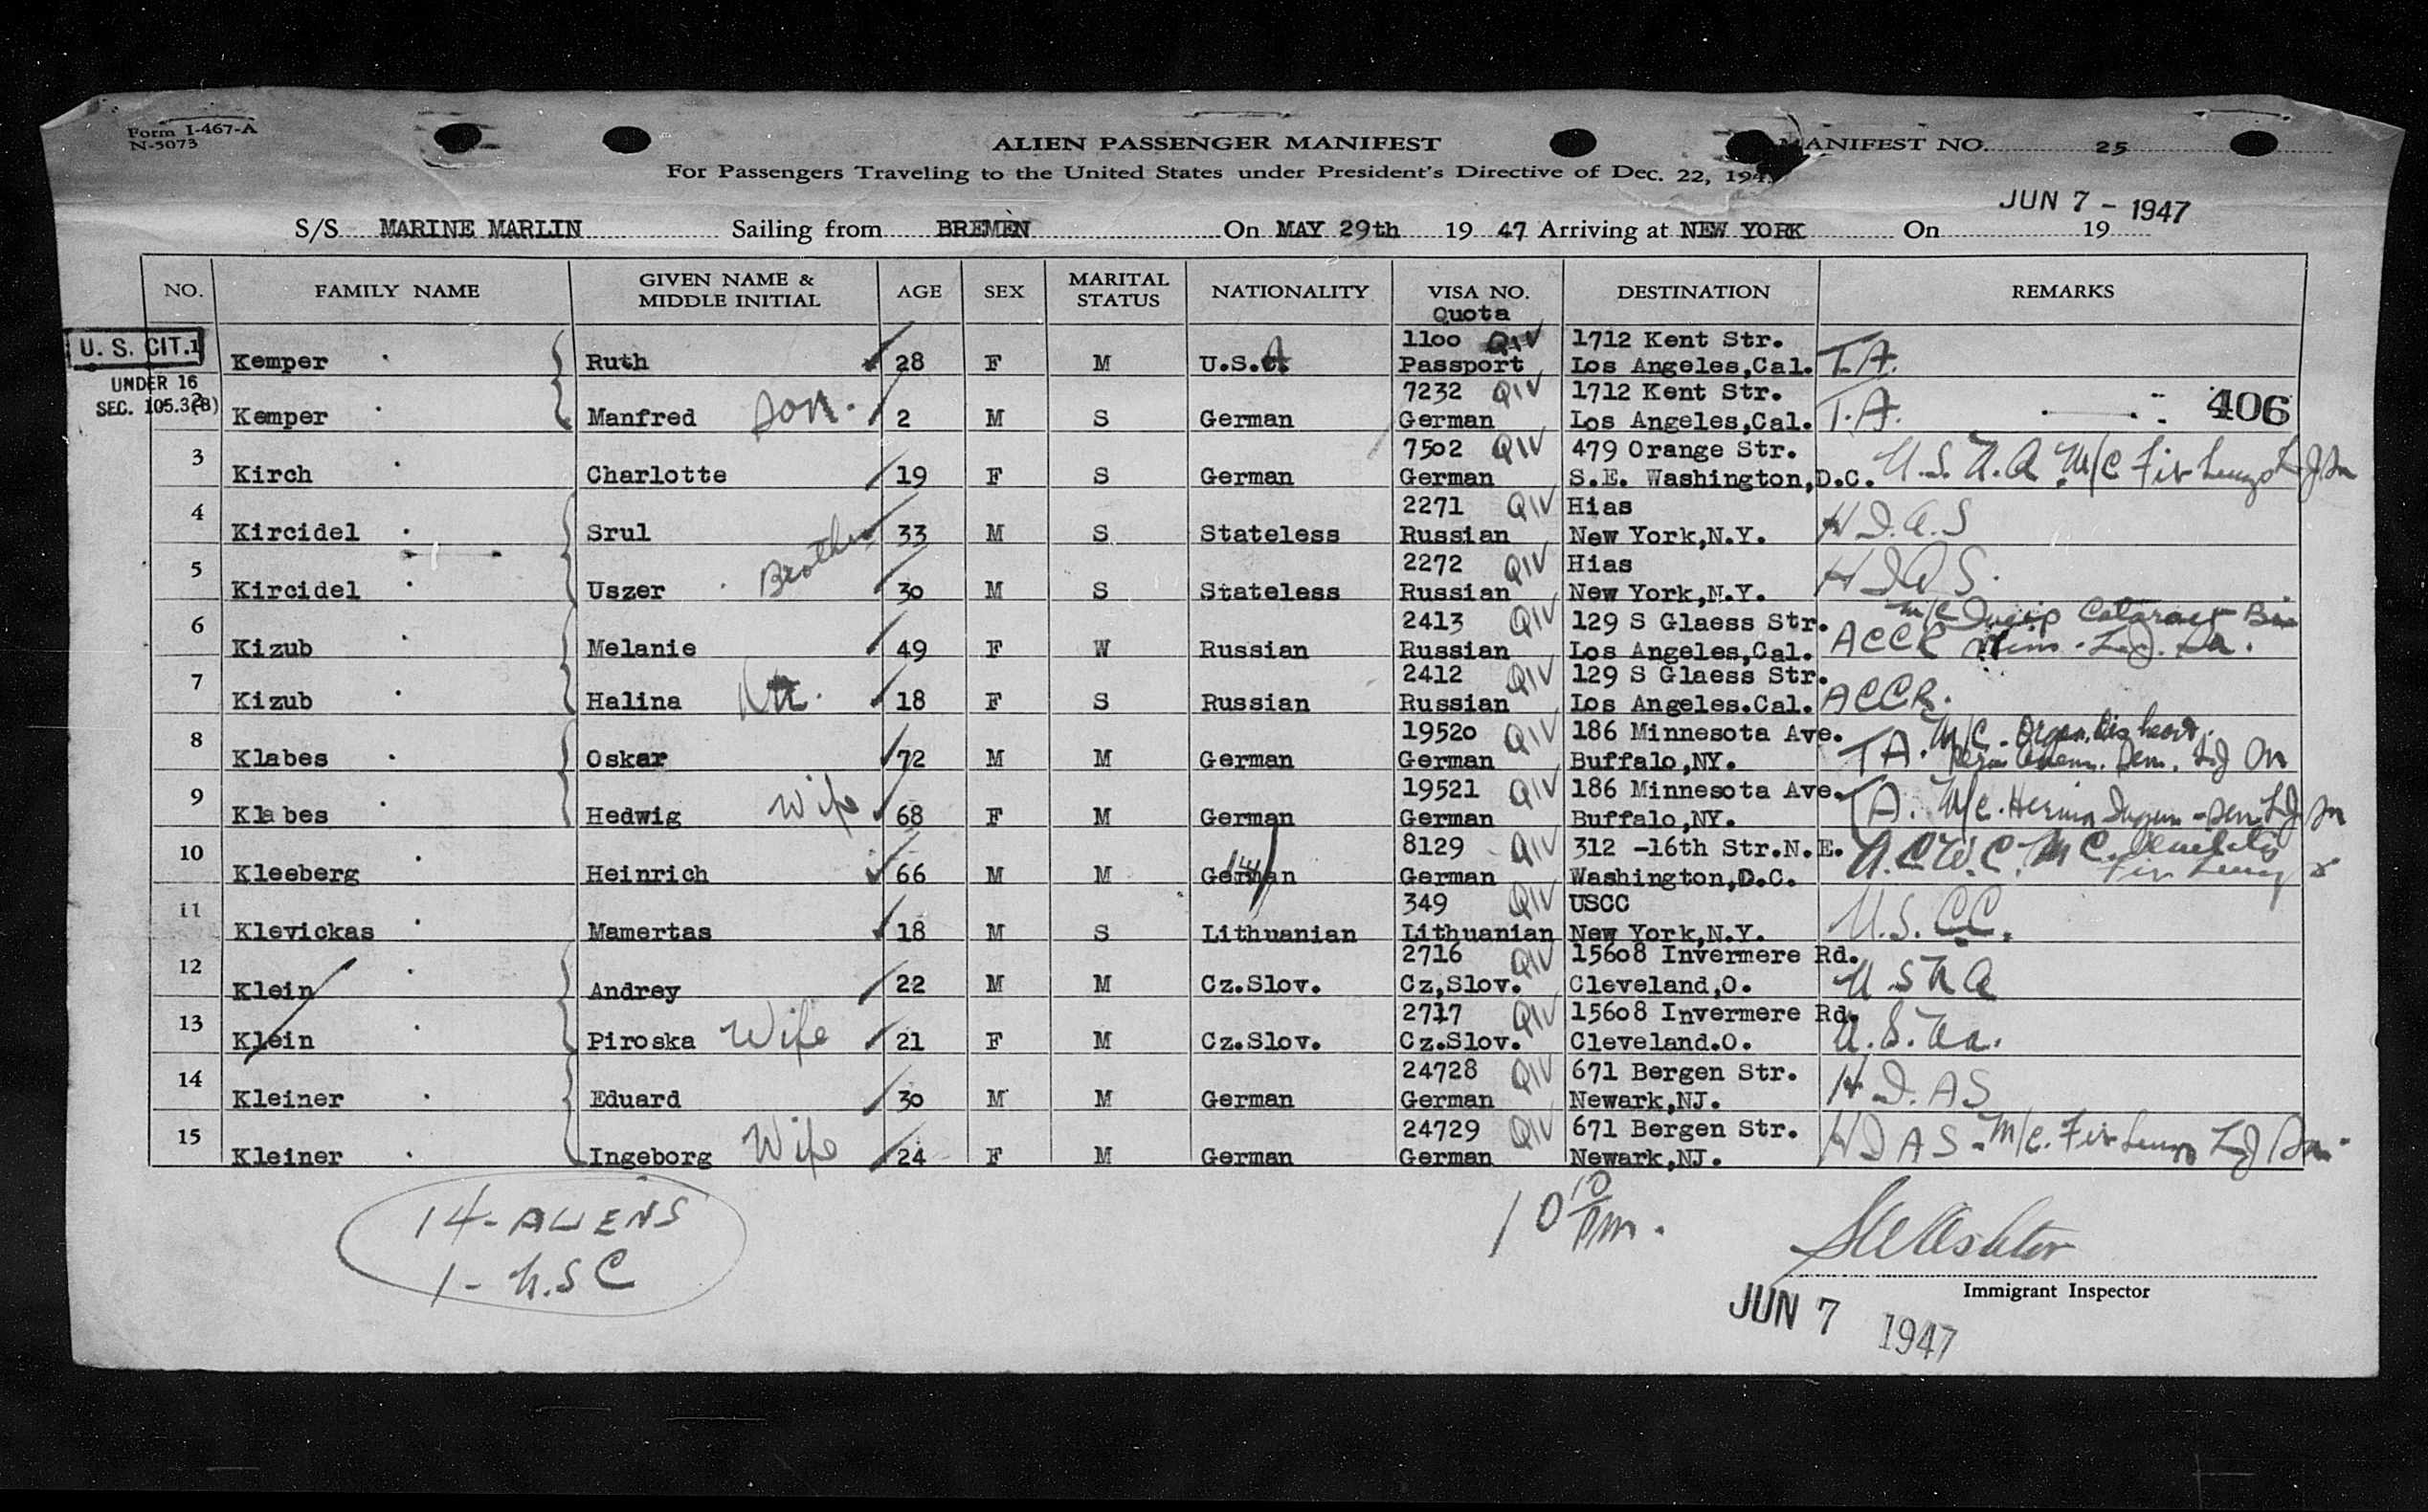 Form I-467-A
N-5073
ALIEN PASSENGER MANIFEST
MANIFEST NO. 25
For Passengers Traveling to the United States under President's Directive of Dec. 22, 194
JUN 7 - 1947
S/S MARINE MARLIN Sailing from BREMEN On MAY 29th 19 47 Arriving at NEW YORK On 19
NO. FAMILY NAME GIVEN NAME & MIDDLE INITIAL AGE SEX MARITAL STATUS NATIONALITY VISA NO. Quota DESTINATION REMARKS
U. S. CIT. 1 1100 QIV 1712 Kent Str.
Kemper Ruth 28 F M U.S.A Passport Los Angeles,Cal. T.A.
UNDER 16
SEC. 105.3(B) 2 7232 QIV 1712 Kent Str.
Kemper Manfred son. 2 M S German German Los Angeles,Cal. T.A. 406
3 7502 QIV 479 Orange Str.
Kirch Charlotte 19 F S German German S.E. Washington,D.C. U.S.N.A. M/C
4 2271 QIV Hias
Kircidel Srul 33 M S Stateless Russian New York,N.Y. HIAS
5 2272 QIV Hias
Kircidel Uszer Brother 30 M S Stateless Russian New York,N.Y. HIAS.
6 2413 QIV 129 S Glaess Str. M/C Cataract
Kizub Melanie 49 F W Russian Russian Los Angeles,Cal. ACCR
7 2412 QIV 129 S Glaess Str.
Kizub Halina 18 F S Russian Russian Los Angeles.Cal. ACCR.
8 19520 QIV 186 Minnesota Ave. M/C
Klabes Oskar 72 M M German German Buffalo,NY. T A.
9 19521 QIV 186 Minnesota Ave.
Klabes Hedwig Wife 68 F M German German Buffalo,NY. T A. M/C. Hernia
10 8129 QIV 312 -16th Str.N.E.
Kleeberg Heinrich 66 M M German German Washington,D.C. A.C.W.C. M C.
11 349 QIV USCC
Klevickas Mamertas 18 M S Lithuanian Lithuanian New York,N.Y. U.S.CC.
12 2716 QIV 15608 Invermere Rd.
Klein Andrey 22 M M Cz.Slov. Cz,Slov. Cleveland,O. U S N A
13 2717 QIV 15608 Invermere Rd.
Klein Piroska Wife 21 F M Cz.Slov. Cz.Slov. Cleveland.O. U.S.Na.
14 24728 QIV 671 Bergen Str.
Kleiner Eduard 30 M M German German Newark,NJ. H I. AS
15 24729 QIV 671 Bergen Str.
Kleiner Ingeborg Wife 24 F M German German Newark,NJ. HIAS - M/C.
14 - ALIENS
1 - U.S C
10 10 Pm.
Immigrant Inspector
JUN 7 1947